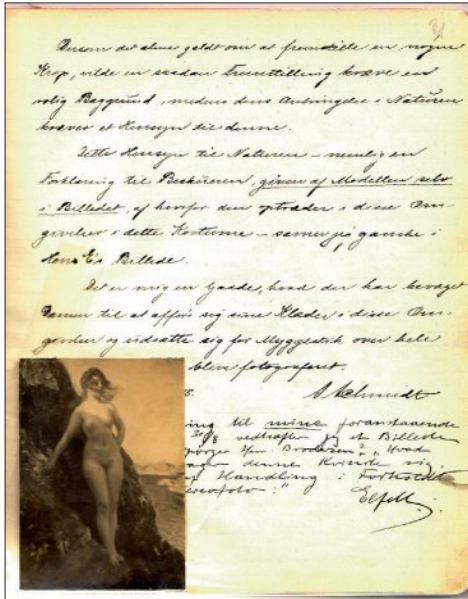 31
Dersom det alene galdt om at fremstille en nøgen
Krop, vilde en saadan Fremstilling kræve en
rolig Baggrund, medens dens Anbringelse i Naturen
kræver et Hensyn til denne.
Dette Hensyn til Naturen – nemlig en
Forklaring til Beskueren, given af Modellen selv
i Billedet, af hvorfor den optræder i disse Om-
givelser i dette Kostume – savner jeg ganske i
Herr E's Billede.
Det er mig en Gaade, hvad der har bevæget
Damen til at afføre sig sine Klæder i disse Om-
givelser og udsætte sig for Myggestik over hele
blive fotograferet.
S. Schmidt
ing til mine foranstaaende
20/8 vedhæfter jeg et Billede
spørger Hrr. Brodersen: "Hvad
denne Kvinde sig
Handling i Forhold